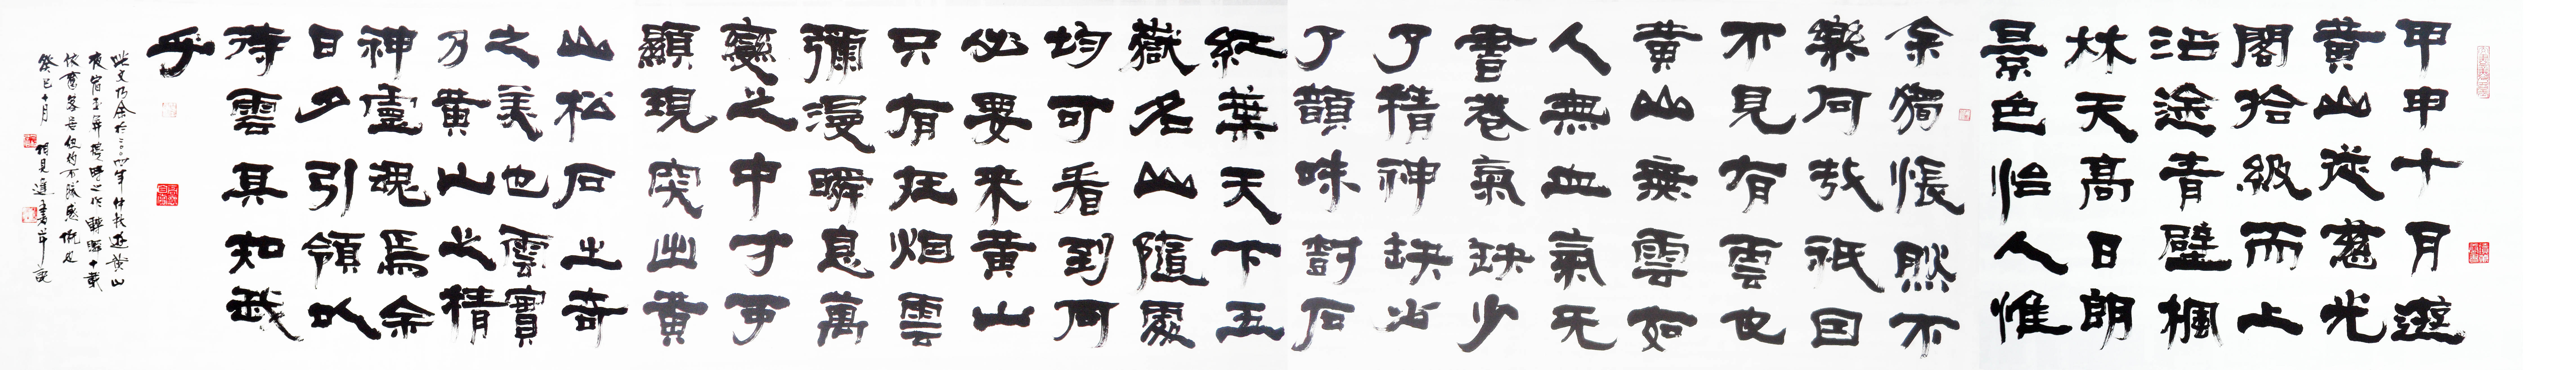 甲申十月遊
黄山從慈光
閣拾級而上
沿途青壁楓
林天高日朗
景色怡人惟
余獨悵然不
樂何哉祇因
不見有雲也
黄山無雲如
人無血氣无
書卷氣缺少
了精神缺少
了韻味對石
紅葉天下五
嶽名山隨處
均可看到何
必要来黄山
只有狂烟雲
彌漫瞬息萬
變之中才可
顯現突出黄
山松石之奇
之美也雲實
乃黄山之精
神靈魂焉余
日夕引領以
待雲其知我
乎
此文乃余於二〇〇四年仲秋遊黄山
夜宿玉屏樓時之作轉瞬十載
癸巳十月